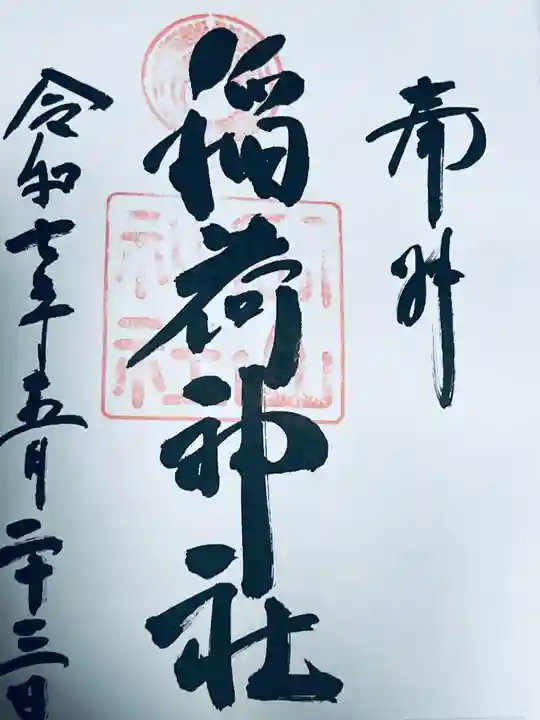 奉拝
稲荷神社
令和七年五月二十三日